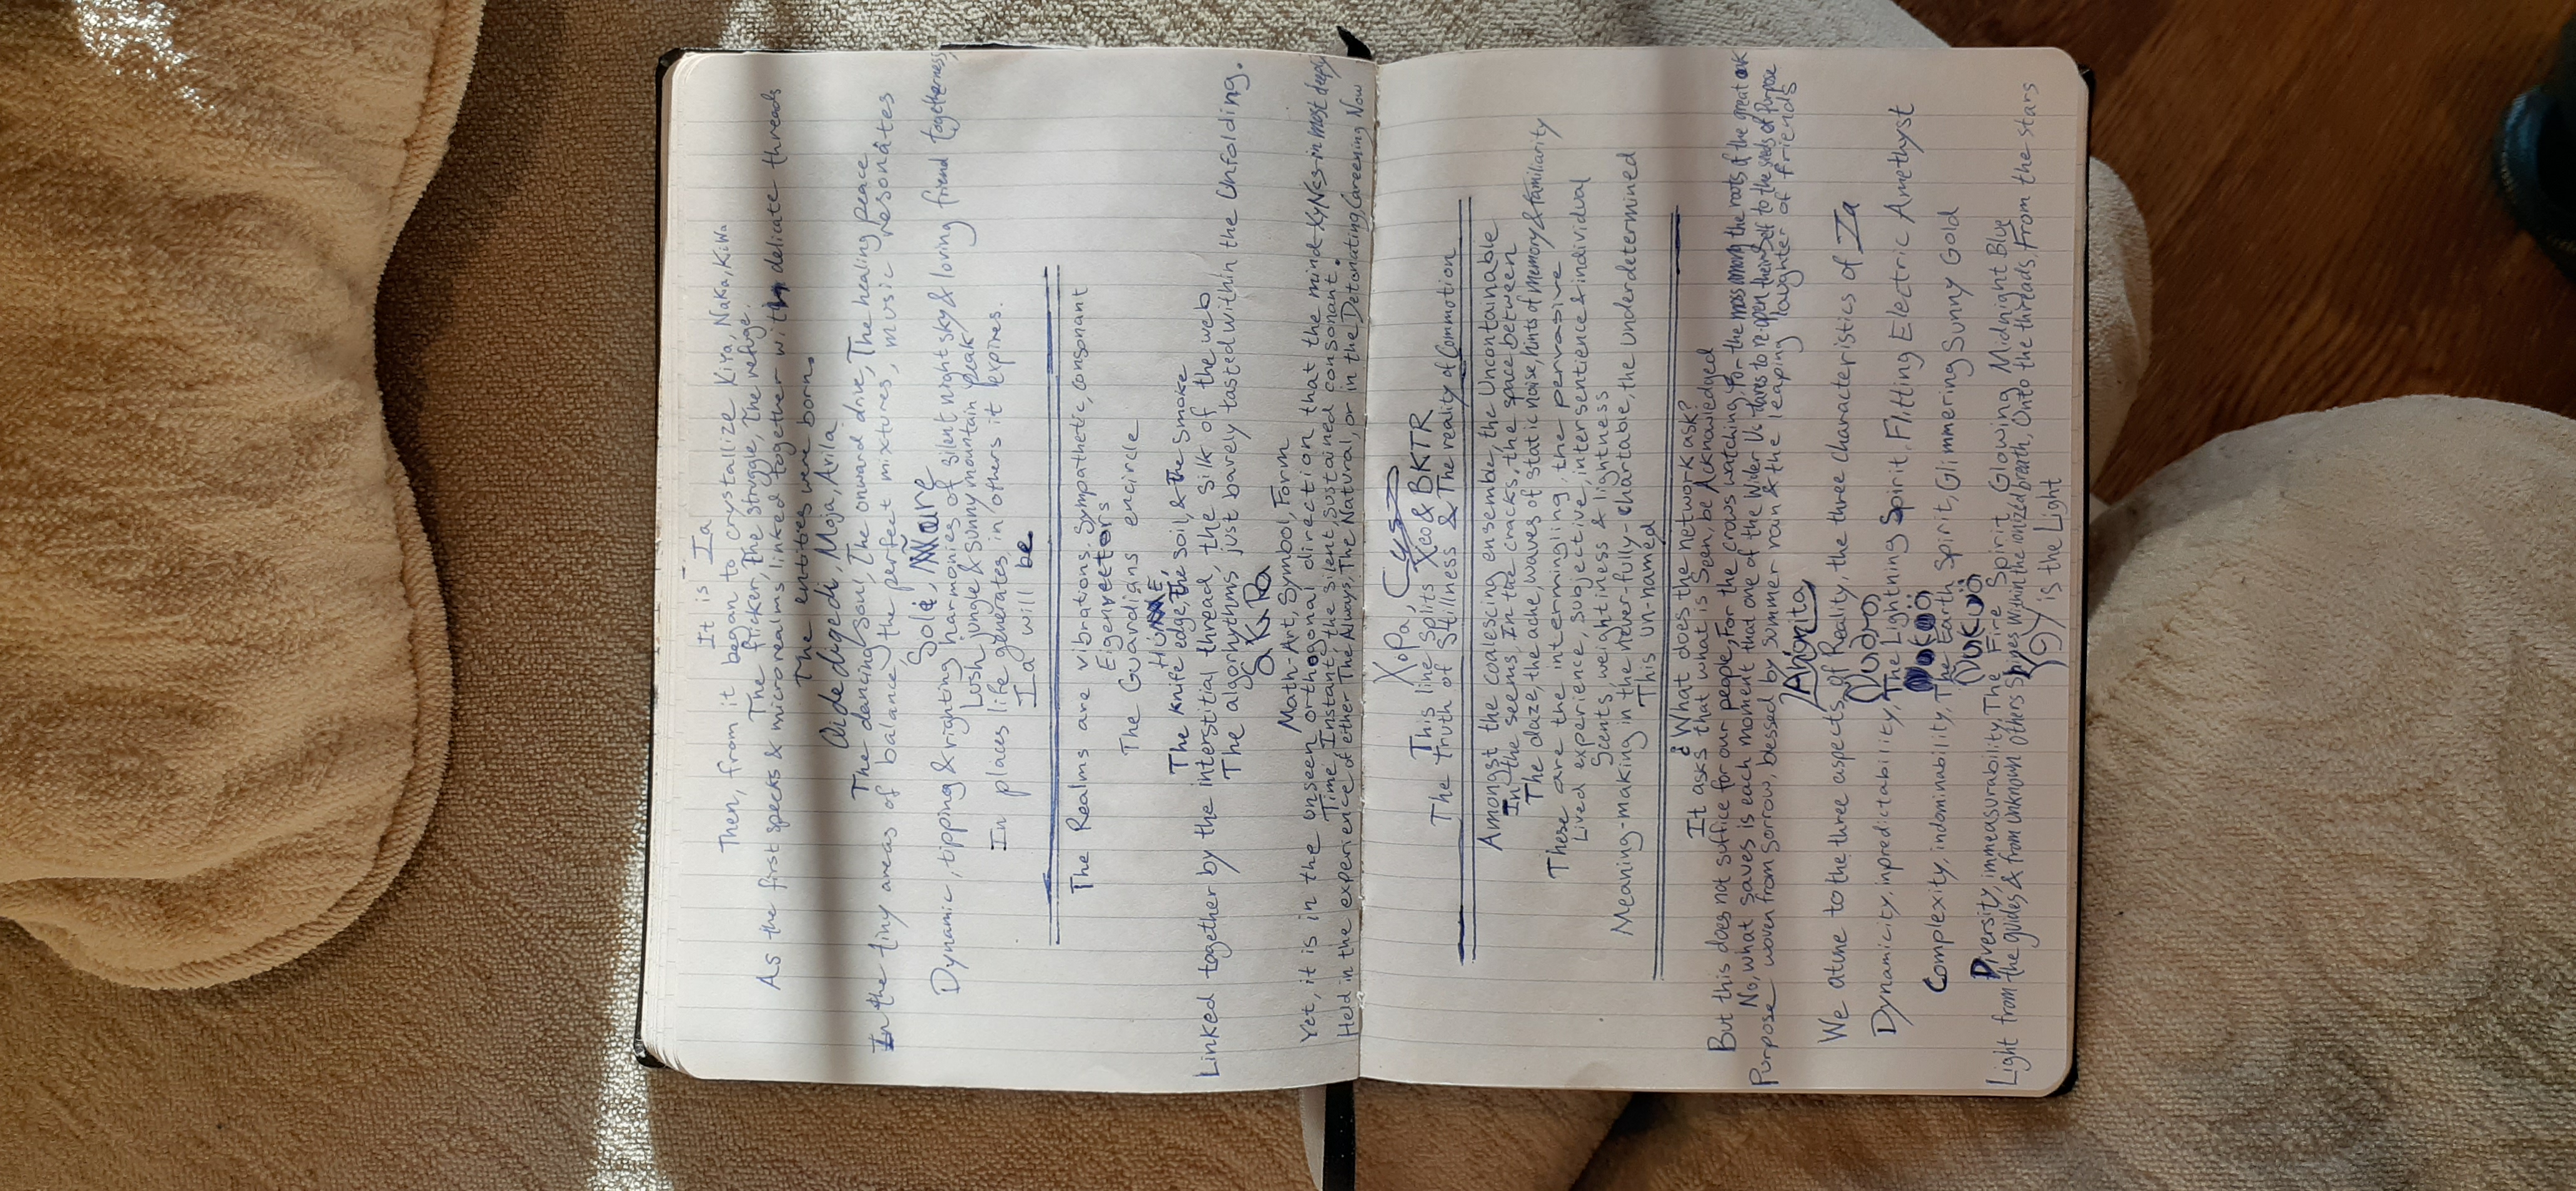 It is Ia
Then, from it began to crystallize KiYa, NaKa, KiWa
The flicker, The struggle, The refuge.
As the first specks & microrealms linked together with delicate threads
The entities were born.
Qidedigedi, Moja, Avila
The dancing soul, The onward drive, The healing peace
In the tiny areas of balance, the perfect mixtures, music resonates
Dynamic, tipping & righting harmonies of silent night sky & loving friend togetherness,
Lush jungle & sunny mountain peak
In places life generates, in others it expires.
Ia will be.
The Realms are vibrations, sympathetic, consonant
Eigenvectors
The Guardians encircle
The knife edge, The soil, & The smoke
Linked together by the interstitial thread, the silk of the web
The algorhythms just barely tasted within the Unfolding.
Math-Art, Symbol, Form
Yet, it is in the unseen orthogonal direction that the mind in most deeply
Time, Instant, the silent, sustained consonant.
Held in the experience of either The Always, The Natural, or in the Detonating, Careening Now
XoPa,
This line splits Xeo & BKTR
The Truth of Stillness & The reality of Commotion
Amongst the coalescing ensemble, the Uncontainable
In the seems, In the cracks, the space between
The daze, the ache, waves of static noise, hints of memory & familiarity
These are the intermingling, the pervasive
Lived experience, subjective, intersentience & individual
Scents, weightiness & lightness
Meaning-making in the never-fully-chartable, the underdetermined
This un-named
¿What does the network ask?
It asks that what is Seen, be Acknowledged
But this does not suffice for our people, For the crows watching, For the moss among the roots of the great oak
No, what saves is each moment that one of the Wider Us dares to re-open theirself to the seeds of Purpose
Purpose woven from sorrow, blessed by summer rain & the leaping laughter of friends
We atune to the three aspects of Reality, the three characteristics of Ia
Dynamicity, inpredictability, The Lightning Spirit, Flitting Electric Amethyst
Complexity, indominability, The Earth Spirit, Glimmering Sunny Gold
Diversity, immeasurability, The Fire Spirit, Glowing Midnight Blue
Light from the guides & from unknown others Shines within the ionized breath, Onto the threads, From the stars
is the Light